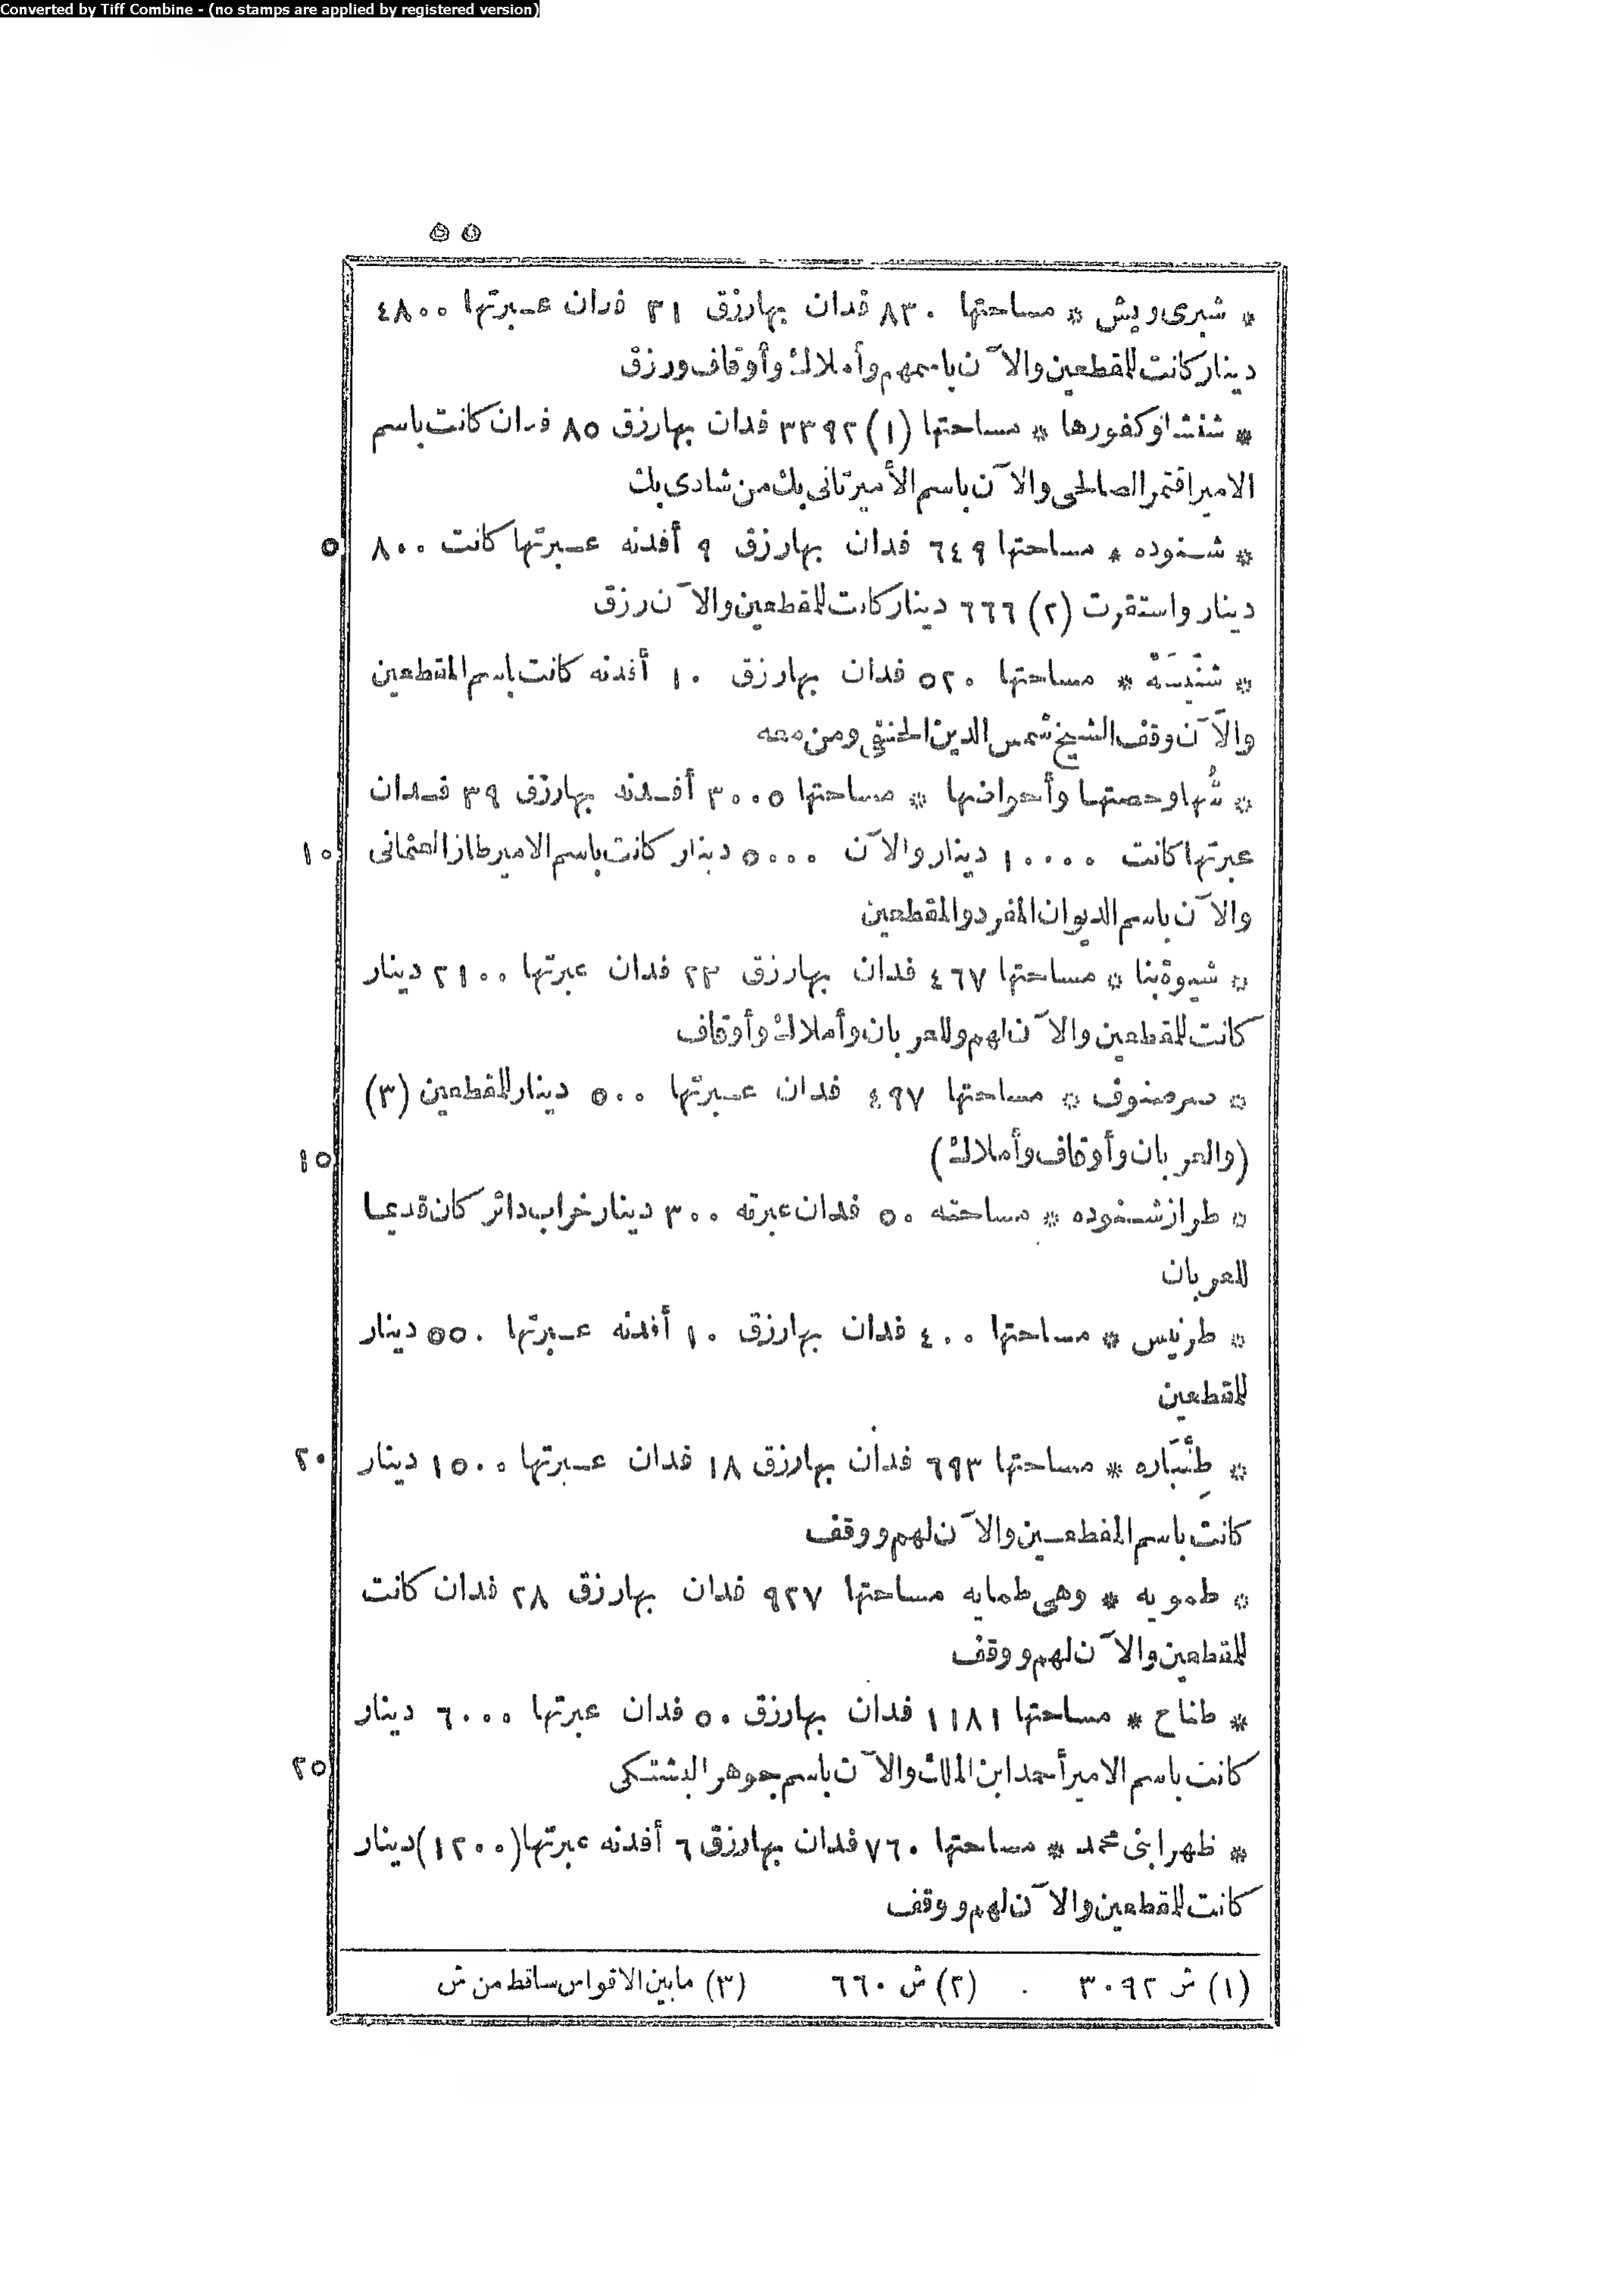 Converted by Tiff Combine - (no stamps are applied by registered version)
٥٥
* شبرى ويش * مساحتها ٨٣٠ فدان بها رزق ٣١ فدان عبرتها ٤٨٠٠
دينار كانت للمقطعين والآن باسمهم وأملاك وأوقاف ورزق
* شنشا وكفورها * مساحتها (١) ٣٣٩٢ فدان بها رزق ٨٥ فدان كانت باسم
الامير اقتمر الصالحى والآن باسم الأمير تانى بك من شادى بك
* شنوده * مساحتها ٦٤٩ فدان بها رزق ٩ أفدنه عبرتها كانت ٨٠٠ ٥
دينار واستقرت (٢) ٦٦٦ دينار كانت للمقطعين والآن رزق
* مساحتها ٥٢٠ فدان بها رزق ١٠ أفدنه كانت باسم المقطعين
والآن وقف الشيخ شمس الدين الحنفى ومن معه
* وحصتها وأحواضها * مساحتها ٣٠٠٥ أفدنه بها رزق ٣٩ فدان
عبرتها كانت ١٠٠٠٠ دينار والآن ٥٠٠٠ دينار كانت باسم الامير طاز العثمانى ١٠
والآن باسم الديوان المفرد والمقطعين
* شيوة بنا * مساحتها ٤٦٧ فدان بها رزق ٢٣ فدان عبرتها ٢١٠٠ دينار
كانت للمقطعين والآن لهم وللعربان وأملاك وأوقاف
* صرصنوف * مساحتها ٤٩٧ فدان عبرتها ٥٠٠ دينار للمقطعين (٣)
(والعربان وأوقاف وأملاك) ١٥
* طراز شنوده * مساحته ٥٠ فدان عبرته ٣٠٠ دينار خراب داثر كان قديما
للعربان
* طرنيس * مساحتها ٤٠٠ فدان بها رزق ١٠ أفدنه عبرتها ٥٥٠ دينار
للمقطعين
* طِنْبَاره * مساحتها ٦٩٣ فدان بها رزق ١٨ فدان عبرتها ١٥٠٠ دينار ٢٠
كانت باسم المقطعين والآن لهم ووقف
* طمويه * وهى طمايه مساحتها ٩٢٧ فدان بها رزق ٢٨ فدان كانت
للمقطعين والآن لهم ووقف
* طناح * مساحتها ١١٨١ فدان بها رزق ٥٠ فدان عبرتها ٦٠٠٠ دينار
كانت باسم الامير أحمد ابن الملك والآن باسم جوهر البشتكى ٢٥
* ظهر ابنى محمد * مساحتها ٧٦٠ فدان بها رزق ٦ أفدنه عبرتها (١٢٠٠) دينار
كانت للمقطعين والآن لهم ووقف
(١) ش ٣٠٩٢ (٢) ش ٦٦٠ (٣) ما بين الاقواس ساقط من ش